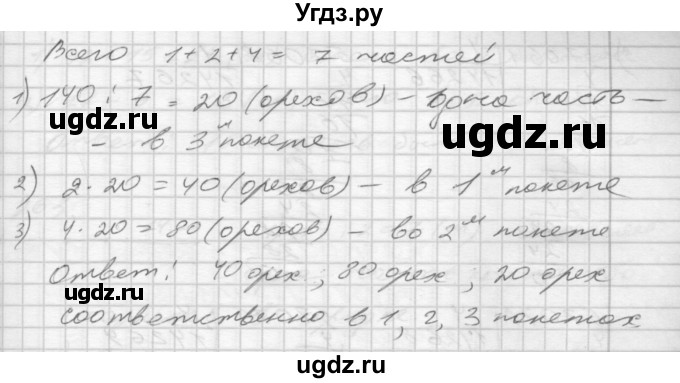 Угдз.ру
Всего 1+2+4= 7 частей
1) 140 : 7 = 20 (орехов) – одна часть –
– в 3м пакете
2) 2·20 = 40 (орехов) – в 1м пакете
3) 4·20 = 80 (орехов) – во 2м пакете
Ответ: 40 орех; 80 орех; 20 орех
соответственно в 1, 2, 3 пакетах
ugdz.ru
ugdz.ru
ugdz.ru
ugdz.ru
ugdz.ru